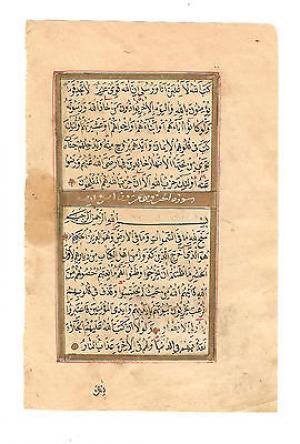 كَتَبَ اللّٰهُ لَاَغْلِبَنَّ اَنَا وَرُسُلِي اِنَّ اللّٰهَ قَوِيٌّ عَزِيزٌ لَا تَجِدُ قَوْمًا
يُؤْمِنُونَ بِاللّٰهِ وَالْيَوْمِ الْاٰخِرِ يُوَادُّونَ مَنْ حَادَّ اللّٰهَ وَرَسُولَهُ
وَلَوْ كَانُوا اٰبَاءَهُمْ اَوْ اَبْنَاءَهُمْ اَوْ اِخْوَانَهُمْ اَوْ عَشِيرَتَهُمْ اُولٰئِكَ
كَتَبَ فِي قُلُوبِهِمُ الْاِيمَانَ وَاَيَّدَهُمْ بِرُوحٍ مِنْهُ وَيُدْخِلُهُمْ جَنَّاتٍ
تَجْرِي مِنْ تَحْتِهَا الْاَنْهَارُ خَالِدِينَ فِيهَا رَضِيَ اللّٰهُ عَنْهُمْ وَرَضُوا
عَنْهُ اُولٰئِكَ حِزْبُ اللّٰهِ اَلَا اِنَّ حِزْبَ اللّٰهِ هُمُ الْمُفْلِحُونَ
سورة الحشر
بِسْمِ اللّٰهِ الرَّحْمٰنِ الرَّحِيمِ
سَبَّحَ لِلّٰهِ مَا فِي السَّمٰوَاتِ وَمَا فِي الْاَرْضِ وَهُوَ الْعَزِيزُ الْحَكِيمُ
هُوَ الَّذِي اَخْرَجَ الَّذِينَ كَفَرُوا مِنْ اَهْلِ الْكِتَابِ مِنْ دِيَارِهِمْ لِاَوَّلِ
الْحَشْرِ مَا ظَنَنْتُمْ اَنْ يَخْرُجُوا وَظَنُّوا اَنَّهُمْ مَانِعَتُهُمْ حُصُونُهُمْ مِنَ
اللّٰهِ فَاَتٰيهُمُ اللّٰهُ مِنْ حَيْثُ لَمْ يَحْتَسِبُوا وَقَذَفَ فِي قُلُوبِهِمُ
الرُّعْبَ يُخْرِبُونَ بُيُوتَهُمْ بِاَيْدِيهِمْ وَاَيْدِي الْمُؤْمِنِينَ فَاعْتَبِرُوا
يَا اُولِي الْاَبْصَارِ وَلَوْلَا اَنْ كَتَبَ اللّٰهُ عَلَيْهِمُ الْجَلَاءَ
لَعَذَّبَهُمْ فِي الدُّنْيَا وَلَهُمْ فِي الْاٰخِرَةِ عَذَابُ النَّارِ
ذلك